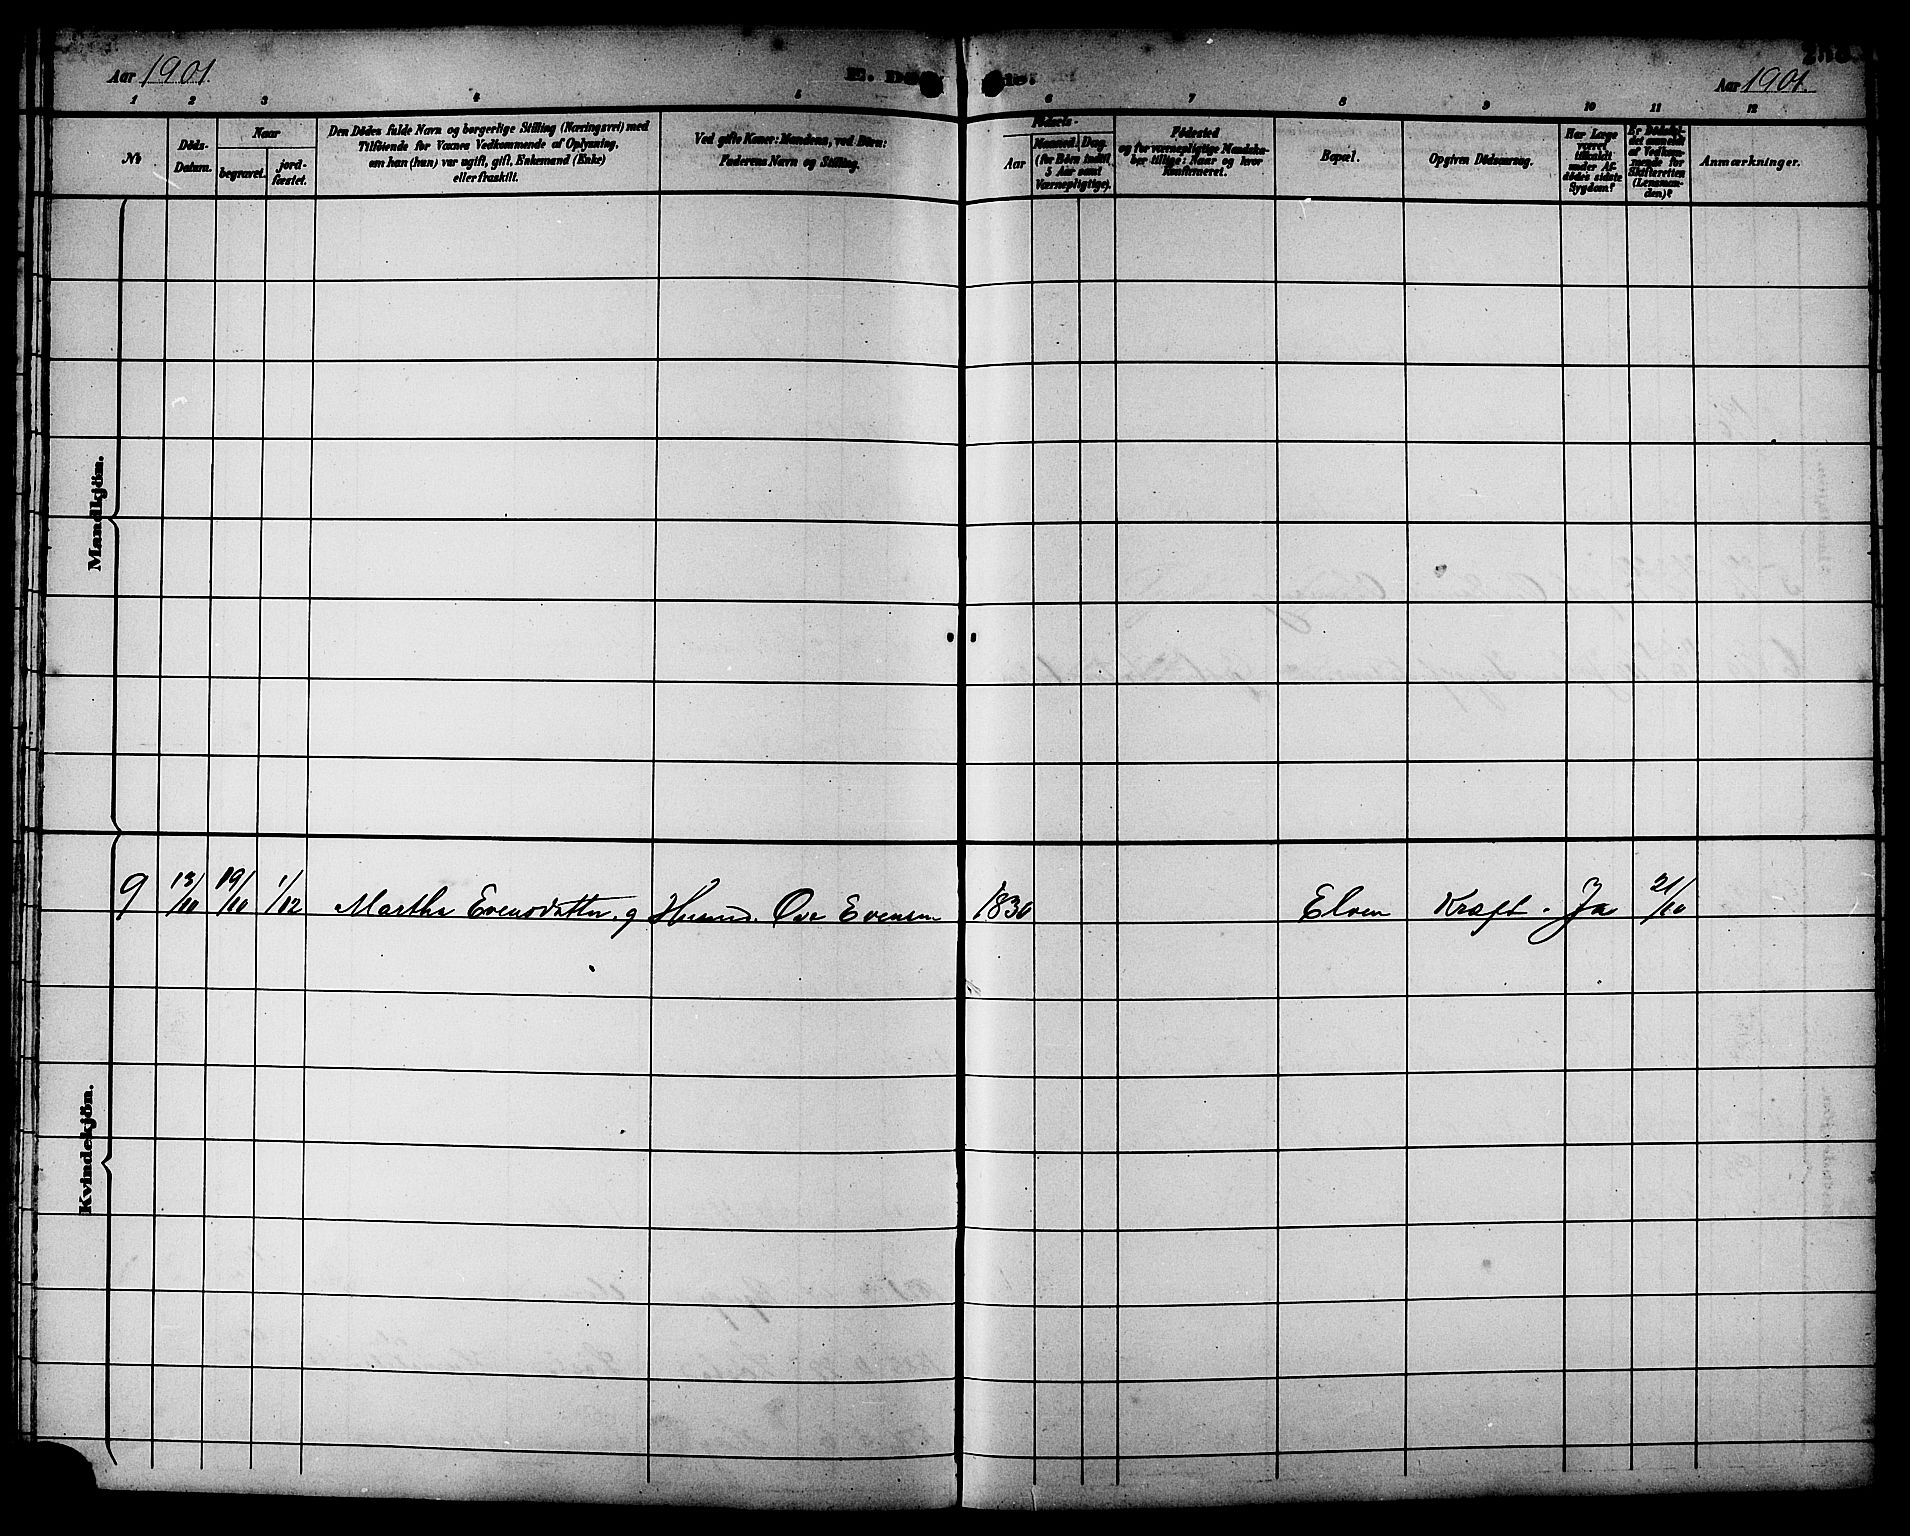 Aar 1901.
E. Dø
Aar 1901.
1 2 3 4 5 6 7 8 9 10 11 12
№
Døds-
Datum.
Naar
begravet.
jord-
fæstet.
Den Dødes fulde Navn og borgerlige Stilling (Næringsvei) med
Tilføiende for Voxnes Vedkommende af Oplysning,
om han (hun) var ugift, gift, Enkemand (Enke)
eller fraskilt.
Ved gifte Koner: Mandens, ved Börn:
Faderens Navn og Stilling.
Födsels-
Aar
Maaned. Dag.
(for Börn indtil
5 Aar samt
Værnepligtige).
Fødested
og for værnepligtige Mandska-
ber tillige: Naar og hvor
Konfirmeret.
Bopæl.
Opgiven Dödsaarsag.
Har Læge
været
tilkaldt
under Af-
dödes sidste
Sygdom?
Er Dødsfal-
det anmeldt
af Vedkom-
mende for
Skifteretten
(Lensman-
den)?
Anmærkninger.
Mandkjön.
9 13/10 19/10 1/02 Martha Evensdatter. g Husmd. Ove Evensen 1830 Elven Kræft. Ja 21/10
Kvindekjön.